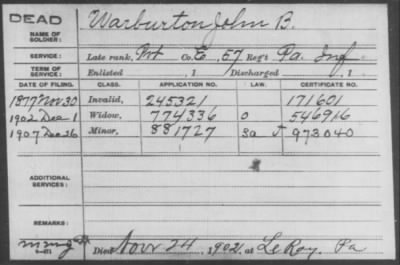 DEAD
NAME OF SOLDIER: Warburton John B.
SERVICE: Late rank, Pvt Co. E, 57 Reg't Pa. Inf
TERM OF SERVICE: Enlisted , 1 Discharged , 1
DATE OF FILING. CLASS. APPLICATION NO. LAW. CERTIFICATE NO.
1877 Nov 30 Invalid, 245321 171601
1902 Dec 1 Widow, 774336 O 546916
1907 Dec 26 Minor, 881727 J 973040
ADDITIONAL SERVICES:
REMARKS:
Died Nov 24, 1902, at LeRoy, Pa